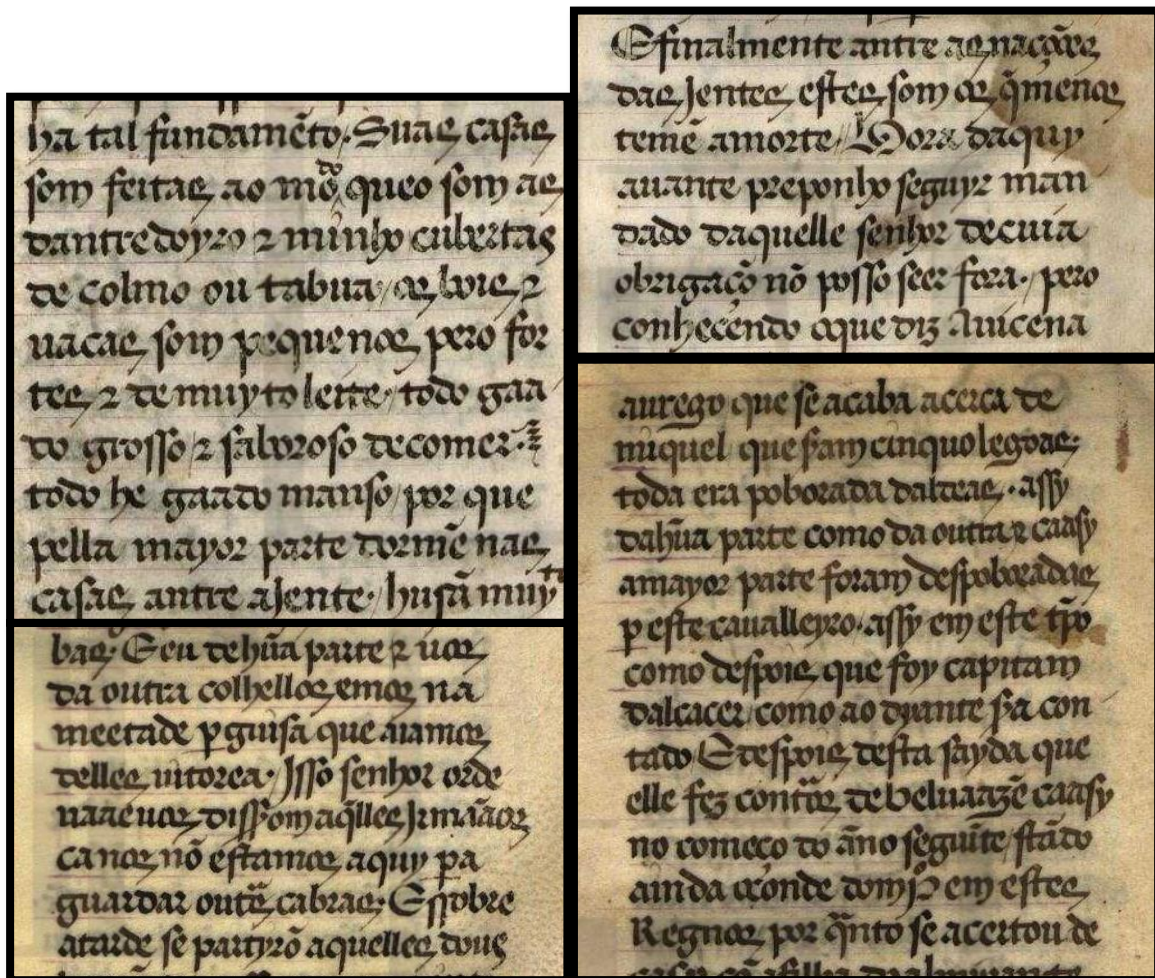 ha tal fundamẽto. Suas casas
som feitas ao mo do queo som as
dantredoyro ⁊ minho cubertas
de colmo ou tabua / os bois ⁊
uacas som pequenos pero for
tes ⁊ de muyto leite todo gaa
do grosso ⁊ saboroso decomer
todo he gaado manso / por que
pella mayor parte dormẽ nas
casas antre ajente. husã muy to
bas. E eu dehũa parte ⁊ uos
da outra colhellos emos na
meetade ꝑ guisa que aiamos
delles uitorea. Isso senhor orde
naae uos disserom aq̃lles Irmãaos
ca nos nõ estamos aquy pa
guardar outᷓs cabras. E ssobre
atarde se partyrõ aquelles dous
E finalmente antre as naçoões
das Jentes estes som os q̃ menos
temẽ amorte / Hora daquy
auante preponho seguyr man
dado daquelle senhor decuia
obrigaçõ nõ posso seer fora. / pero
conhecendo oque diz Auicena
aurego que se acaba acerca de
miquel que seram cinquo legoas.
toda era poborada daldeas. assy
dahũa parte como da outra ⁊ caasy
amayor parte foram despoboradas
ꝑ este caualleyro. assy em este tp̃o
como despois que foy capitam
dalcacer / como ao dyante sera con
tado / E despois desta sayda que
elle fez contᷓos de beluaazẽ caasy
no começo do ãno seguĩte / stãdo
ainda oconde dom pº em estes
Regnos por q̃nto se acertou de